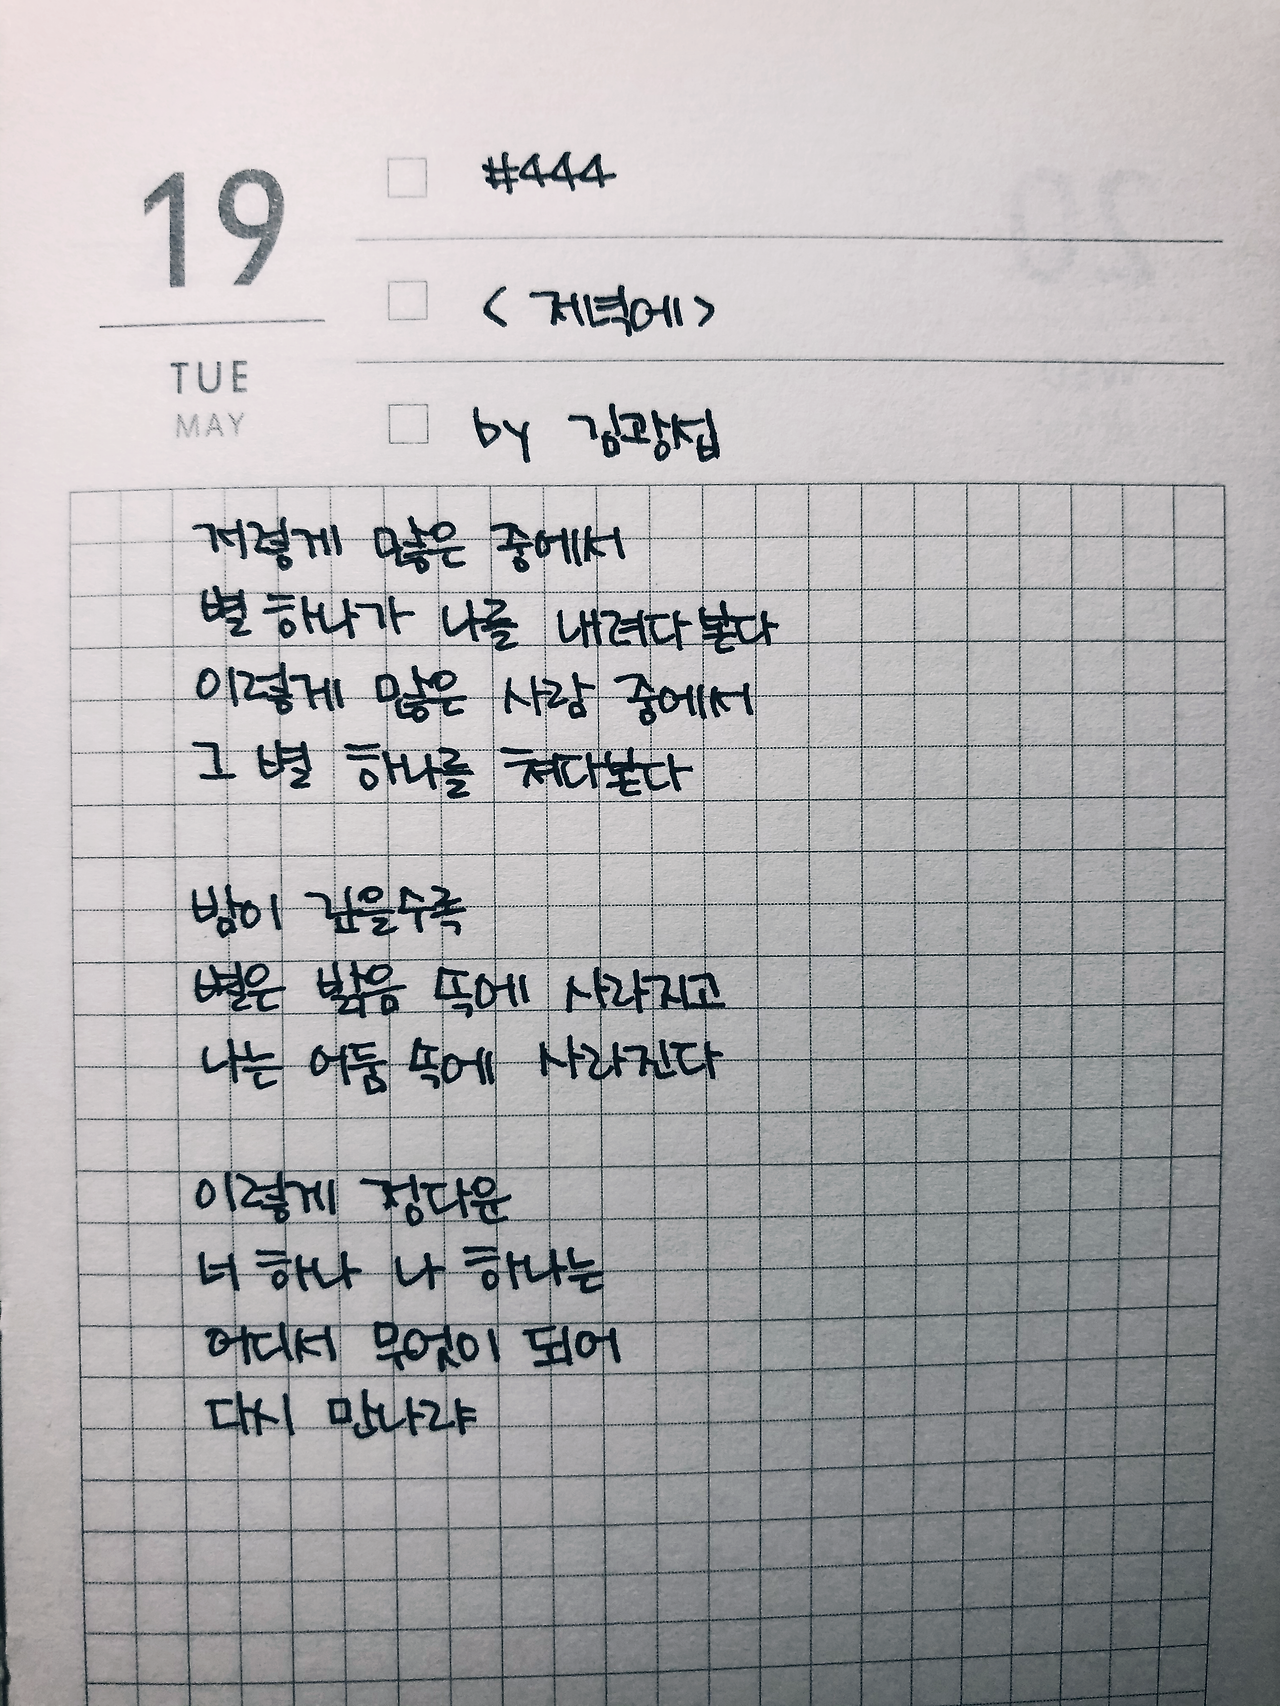 19
TUE
MAY
#444
<저녁에>
by 김광섭
저렇게 많은 중에서
별 하나가 나를 내려다 본다
이렇게 많은 사람 중에서
그 별 하나를 쳐다본다
밤이 깊을수록
별은 밝음 속에 사라지고
나는 어둠 속에 사라진다
이렇게 정다운
너 하나 나 하나는
어디서 무엇이 되어
다시 만나랴